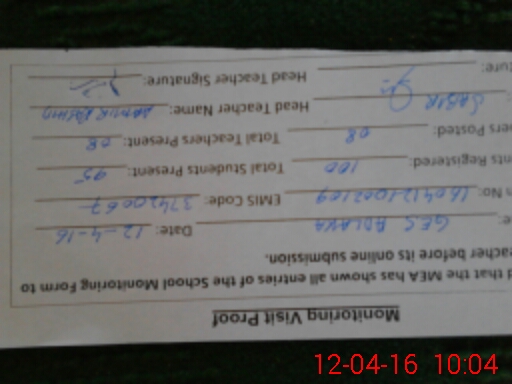 Monitoring Visit Proof
d that the MEA has shown all entries of the School Monitoring Form to
eacher before its online submission.
e: GES ADLANA Date: 12-4-16
n No: 1604121002109 EMIS Code: 37420067
nts Registered: 100 Total Students Present: 95
ers Posted: 08 Total Teachers Present: 08
: SABIR Head Teacher Name:
ture: Head Teacher Signature:
12-04-16 10:04